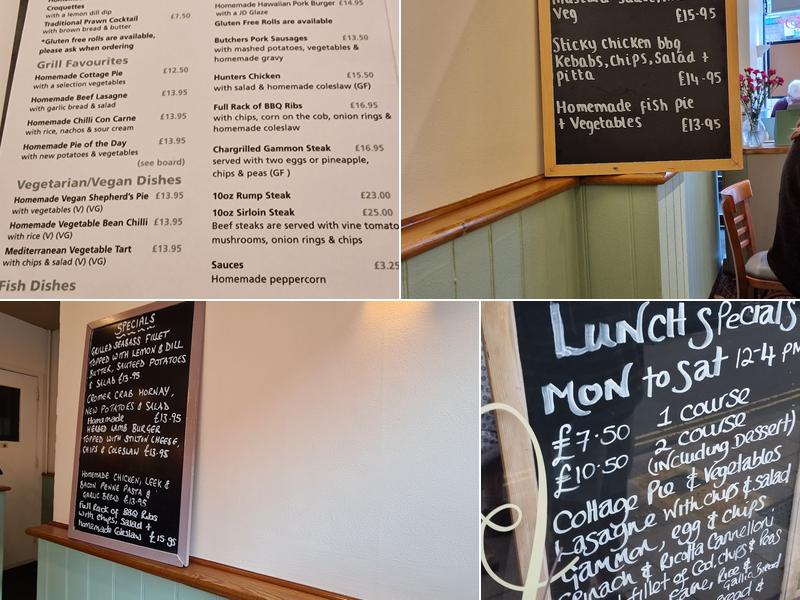 Croquettes
with a lemon dill dip
Traditional Prawn Cocktail £7.50
with brown bread & butter
*Gluten free rolls are available,
please ask when ordering
Grill Favourites
Homemade Cottage Pie £12.50
with a selection vegetables
Homemade Beef Lasagne £13.95
with garlic bread & salad
Homemade Chilli Con Carne £13.95
with rice, nachos & sour cream
Homemade Pie of the Day £13.95
with new potatoes & vegetables
(see board)
Vegetarian/Vegan Dishes
Homemade Vegan Shepherd's Pie £13.95
with vegetables (V) (VG)
Homemade Vegetable Bean Chilli £13.95
with rice (V) (VG)
Mediterranean Vegetable Tart £13.95
with chips & salad (V) (VG)
Fish Dishes
Homemade Hawaiian Pork Burger £14.95
with a JD Glaze
Gluten Free Rolls are available
Butchers Pork Sausages £13.50
with mashed potatoes, vegetables &
homemade gravy
Hunters Chicken £15.50
with salad & homemade coleslaw (GF)
Full Rack of BBQ Ribs £16.95
with chips, corn on the cob, onion rings &
homemade coleslaw
Chargrilled Gammon Steak £16.95
served with two eggs or pineapple,
chips & peas (GF )
10oz Rump Steak £23.00
10oz Sirloin Steak £25.00
Beef steaks are served with vine tomato
mushrooms, onion rings & chips
Sauces £3.25
Homemade peppercorn
Veg £15-95
Sticky chicken bbq
Kebabs, chips, Salad +
pitta £14-95
Homemade fish pie
+ Vegetables £13-95
SPECIALS
GRILLED SEABASS FILLET
TOPPED WITH LEMON & DILL
BUTTER, SAUTEED POTATOES
& SALAD £13-95
CROMER CRAB MORNAY,
NEW POTATOES & SALAD
Homemade £13-95
HERBED LAMB BURGER
TOPPED WITH STILTON CHEESE,
CHIPS & COLESLAW £13-95
HOMEMADE CHICKEN, LEEK &
BACON PENNE PASTA &
GARLIC BREAD £13-95
Full Rack of BBQ Ribs
with chips, Salad +
homemade Coleslaw £15-95
LUNCH Specials
MON to Sat 12-4 PM
£7-50 1 course
£10-50 2 course
(including Dessert)
Cottage Pie & Vegetables
Lasagne with chips & salad
Gammon, egg & chips
Spinach & Ricotta Cannelloni
fillet of Cod, chips & Peas
Rice &
Bread &